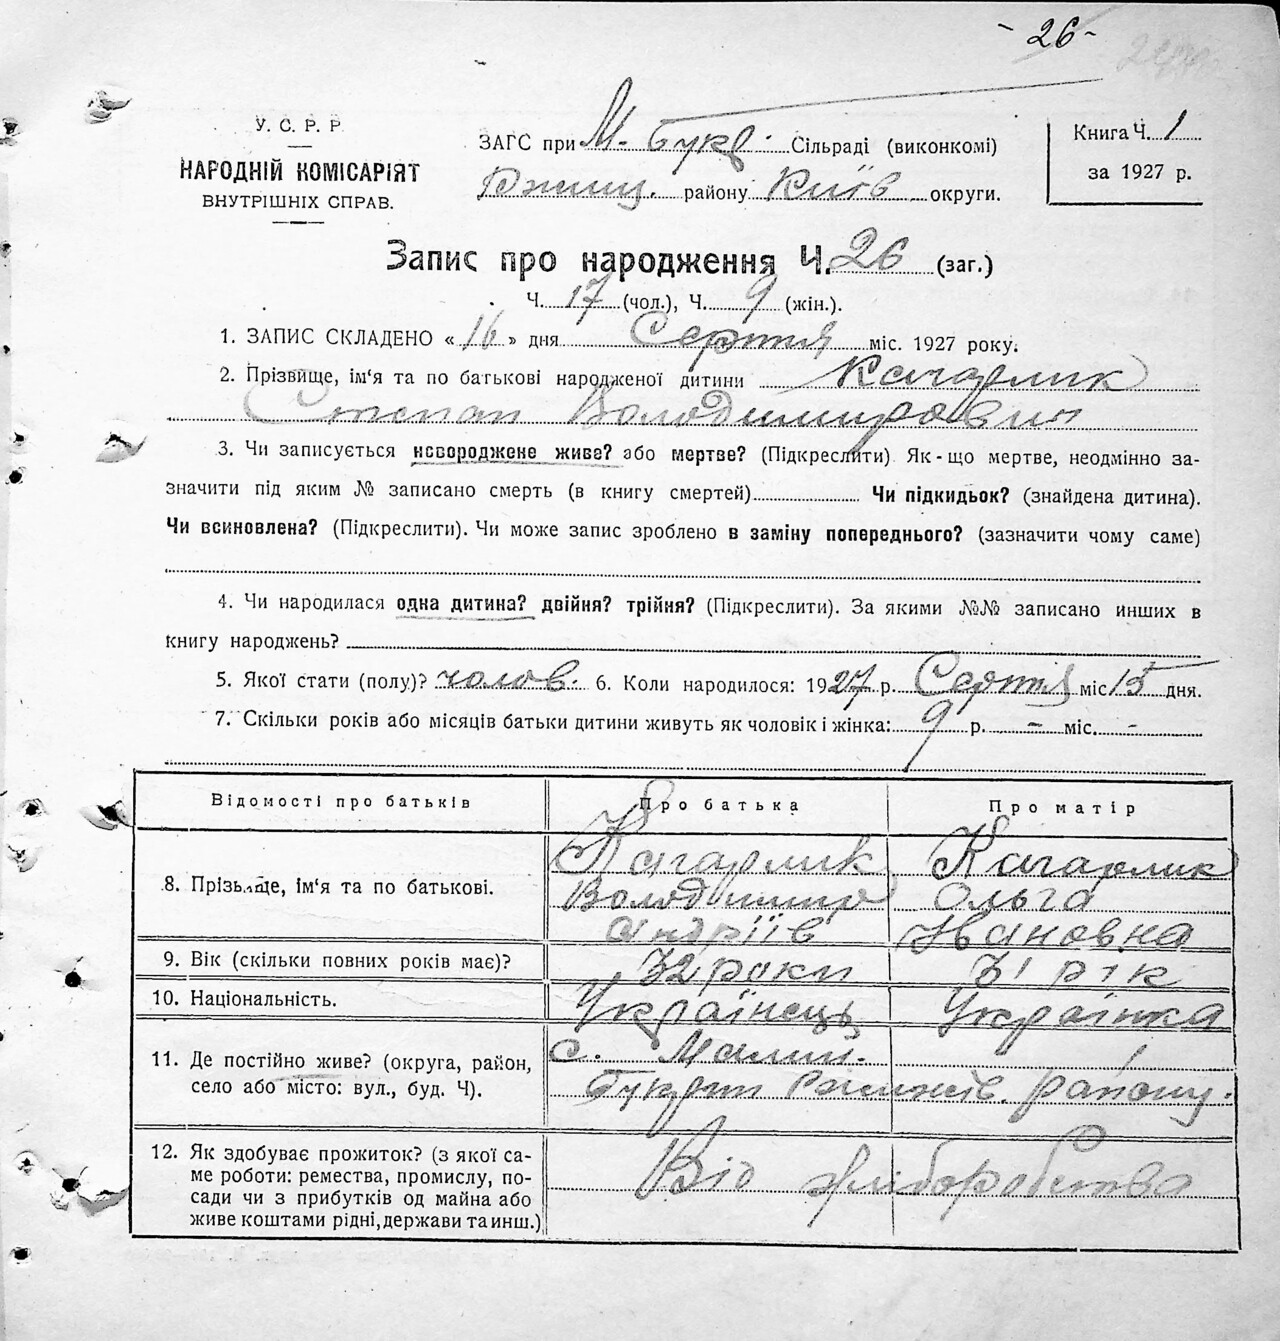 - 26 -
У. С. Р. Р.
НАРОДНІЙ КОМІСАРІЯТ
ВНУТРІШНІХ СПРАВ.
ЗАГС при М. Букр. Сільраді (виконкомі)
Ржищ. району Київ округи.
Книга Ч. 1
за 1927 р.
Запис про народження Ч. 26 (заг.)
Ч. 17 (чол.), Ч. 9 (жін.).
1. ЗАПИС СКЛАДЕНО « 16 » дня Серпня міс. 1927 року.
2. Прізвище, ім'я та по батькові народженої дитини Кагарлик
Степан Володимирович
3. Чи записується новороджене живе? або мертве? (Підкреслити) Як-що мертве, неодмінно за-
значити під яким № записано смерть (в книгу смертей) Чи підкидьок? (знайдена дитина).
Чи всиновлена? (Підкреслити). Чи може запис зроблено в заміну попереднього? (зазначити чому саме)
4. Чи народилася одна дитина? двійня? трійня? (Підкреслити). За якими №№ записано инших в
книгу народжень?
5. Якої стати (полу)? чолов. 6. Коли народилося: 1927 р. Серпня міс 15 дня.
7. Скільки років або місяців батьки дитини живуть як чоловік і жінка: 9 р. - міс. -
Відомості про батьків Про батька Про матір
8. Прізвище, ім'я та по батькові.
Кагарлик Кагарлик
Володимир Ольга
Андріїв Івановна
9. Вік (скільки повних років має)? 32 роки 31 рік
10. Національність. Українець Українка
11. Де постійно живе? (округа, район,
село або місто: вул., буд. Ч).
с. Малий
Букрин району.
12. Як здобуває прожиток? (з якої са-
ме роботи: ремества, промислу, по-
сади чи з прибутків од майна або
живе коштами рідні, держави та инш.)
Від хліборобства